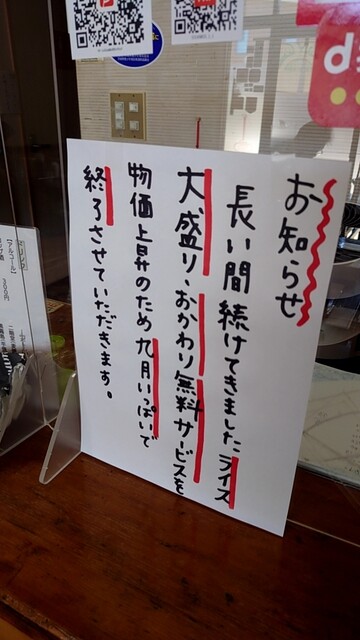 お知らせ
長い間続けてきましたライス
大盛り、おかわり無料サービスを
物価上昇のため九月いっぱいで
終了させていただきます。
【アルコール】